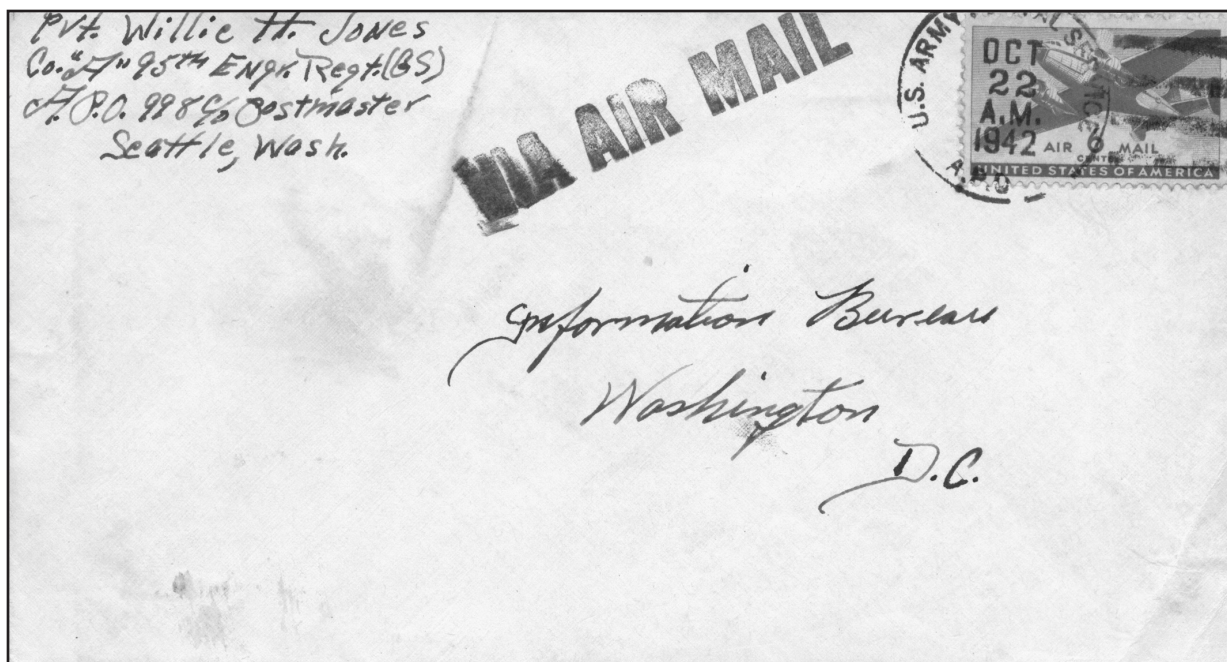 Pvt. Willie H. Jones
Co. "A" 95th Engr. Regt. (GS)
A.P.O. 998 c/o Postmaster
Seattle, Wash.
VIA AIR MAIL
U.S. ARMY POSTAL SERVICE
OCT
22
A.M.
1942
A.P.O.
AIR 6 MAIL
CENTS
UNITED STATES OF AMERICA
Information Bureau
Washington
D.C.